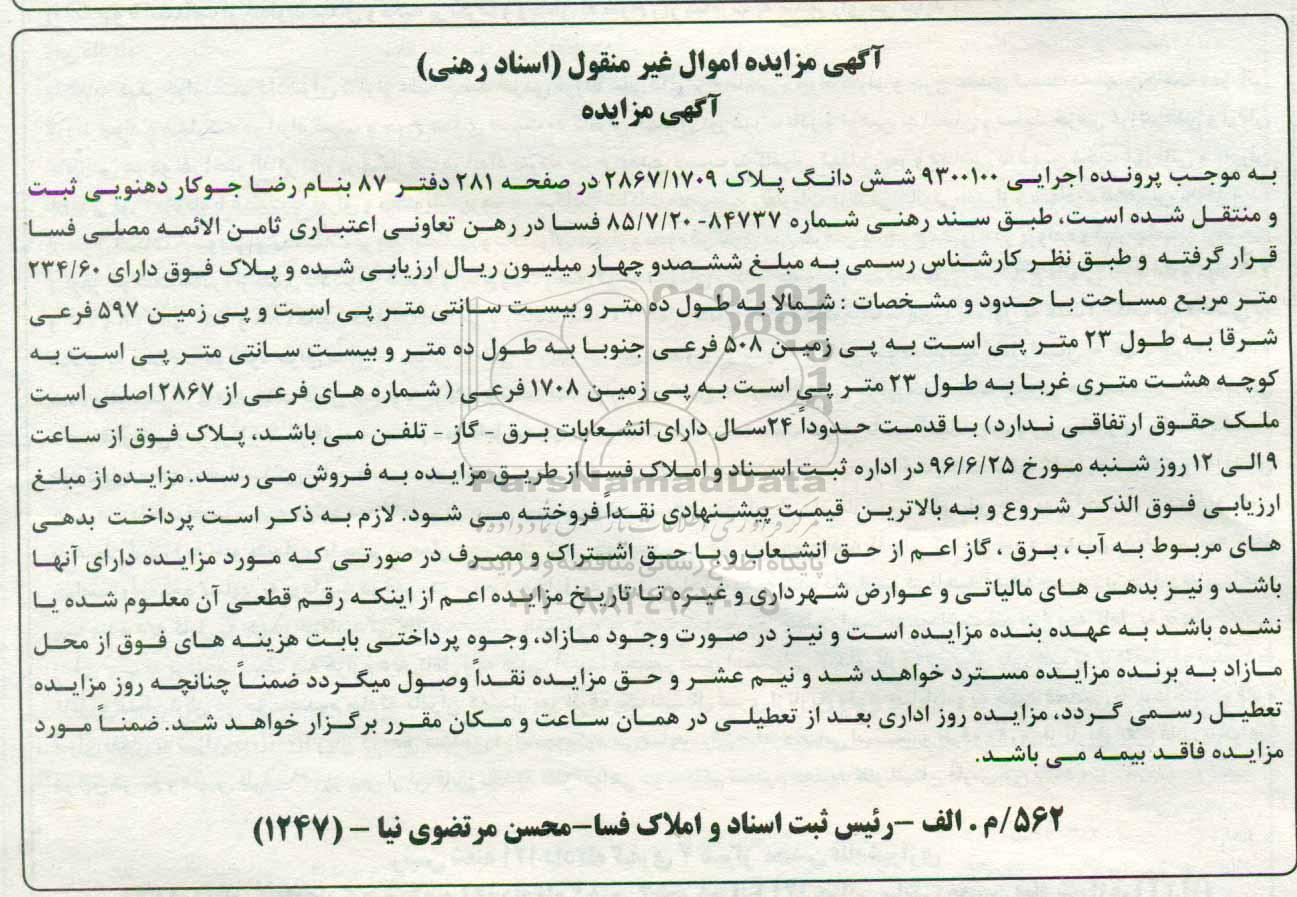 آگهی مزایده اموال غیر منقول (اسناد رهنی)
آگهی مزایده
به موجب پرونده اجرایی ۹۳۰۰۱۰۰ شش دانگ پلاک ۲۸۶۷/۱۷۰۹ در صفحه ۲۸۱ دفتر ۸۷ بنام رضا جوکار دهنویی ثبت
و منتقل شده است، طبق سند رهنی شماره ۸۴۷۳۷- ۸۵/۷/۲۰ فسا در رهن تعاونی اعتباری ثامن الائمه مصلی فسا
قرار گرفته و طبق نظر کارشناس رسمی به مبلغ ششصدو چهار میلیون ریال ارزیابی شده و پلاک فوق دارای ۲۳۴/۶۰
متر مربع مساحت با حدود و مشخصات : شمالا به طول ده متر و بیست سانتی متر پی است و پی زمین ۵۹۷ فرعی
شرقا به طول ۲۳ متر پی است به پی زمین ۵۰۸ فرعی جنوبا به طول ده متر و بیست سانتی متر پی است به
کوچه هشت متری غربا به طول ۲۳ متر پی است به پی زمین ۱۷۰۸ فرعی ( شماره های فرعی از ۲۸۶۷ اصلی است
ملک حقوق ارتفاقی ندارد) با قدمت حدوداً ۲۴سال دارای انشعابات برق - گاز - تلفن می باشد، پلاک فوق از ساعت
۹ الی ۱۲ روز شنبه مورخ ۹۶/۶/۲۵ در اداره ثبت اسناد و املاک فسا از طریق مزایده به فروش می رسد. مزایده از مبلغ
ارزیابی فوق الذکر شروع و به بالاترین قیمت پیشنهادی نقداً فروخته می شود. لازم به ذکر است پرداخت بدهی
های مربوط به آب ، برق ، گاز اعم از حق انشعاب و با حق اشتراک و مصرف در صورتی که مورد مزایده دارای آنها
باشد و نیز بدهی های مالیاتی و عوارض شهرداری و غیره تا تاریخ مزایده اعم از اینکه رقم قطعی آن معلوم شده یا
نشده باشد به عهده بنده مزایده است و نیز در صورت وجود مازاد، وجوه پرداختی بابت هزینه های فوق از محل
مازاد به برنده مزایده مسترد خواهد شد و نیم عشر و حق مزایده نقداً وصول میگردد ضمناً چنانچه روز مزایده
تعطیل رسمی گردد، مزایده روز اداری بعد از تعطیلی در همان ساعت و مکان مقرر برگزار خواهد شد. ضمناً مورد
مزایده فاقد بیمه می باشد.
۵۶۲/م . الف -رئیس ثبت اسناد و املاک فسا-محسن مرتضوی نیا - (۱۲۴۷)
ParsNamadData
پایگاه اطلاع رسانی مناقصه و مزایده